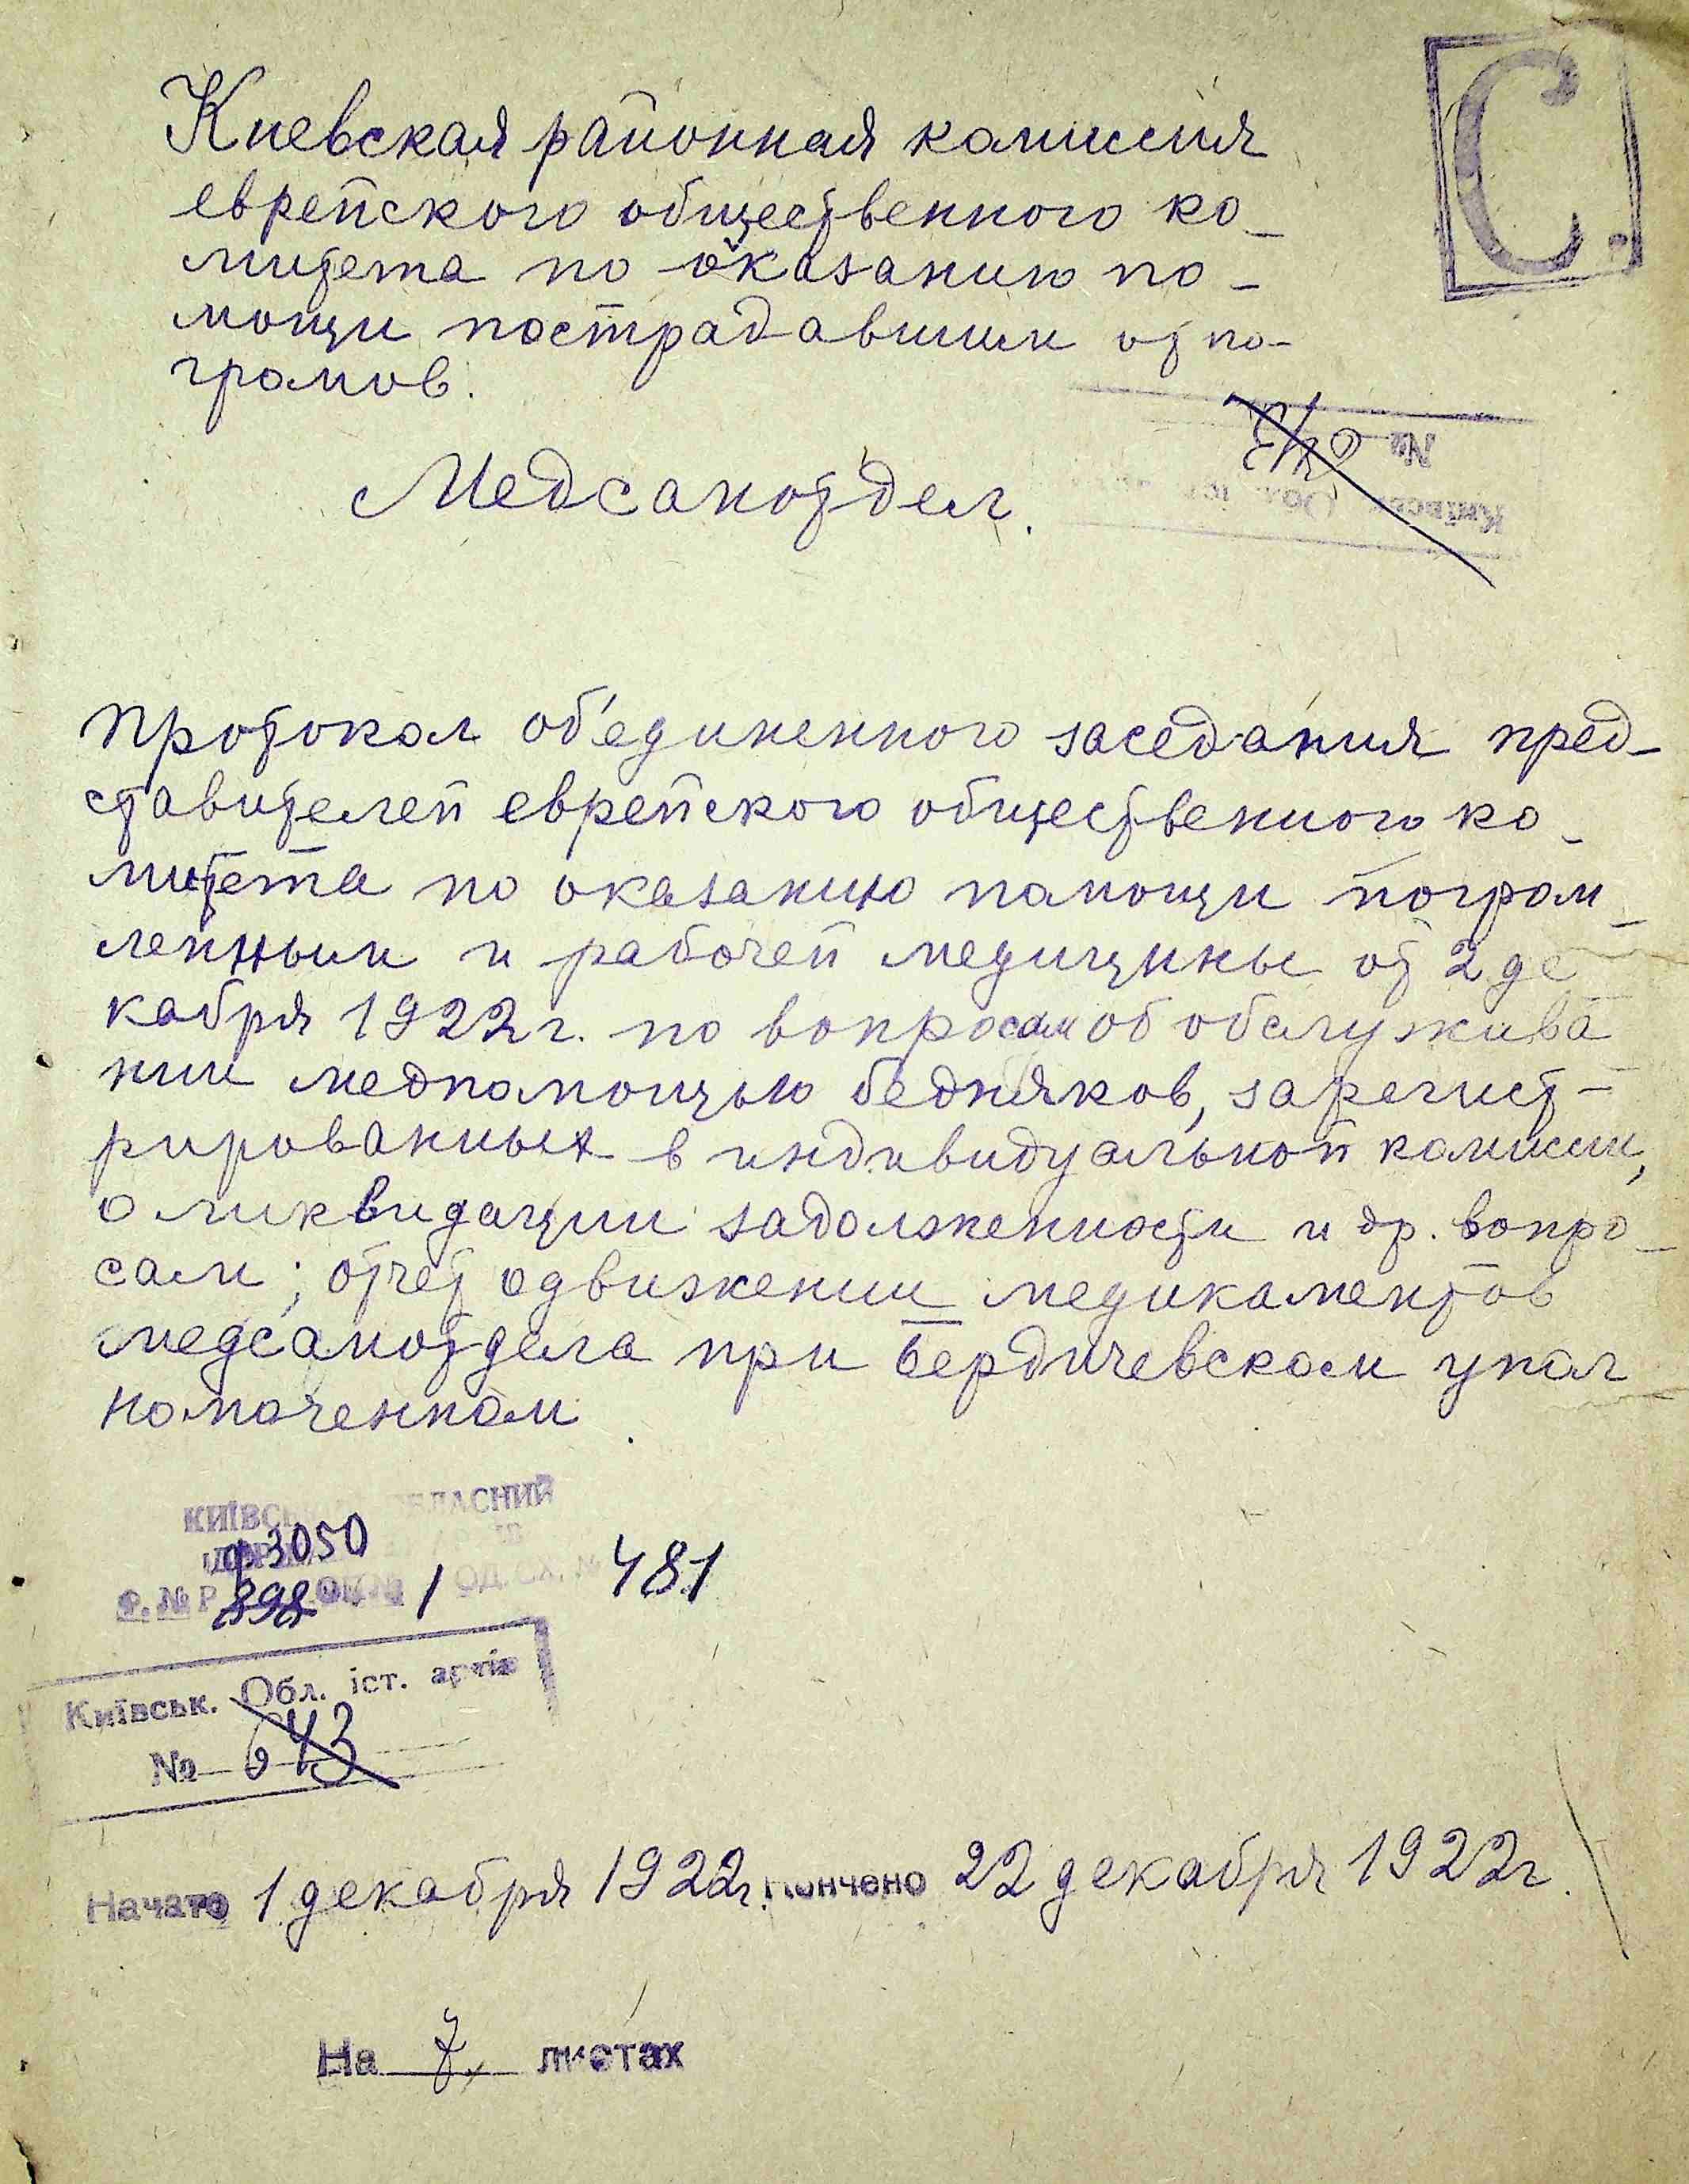 С.
Киевская районная комиссия
еврейского общественного ко-
митета по оказанию по-
мощи пострадавшим от по-
громов.
Медсанотдел.
Протокол об'единенного заседания пред-
ставителей еврейского общественного ко-
митета по оказанию помощи погром-
ленным и рабочей медицины от 2 де
кабря 1922 г. по вопросам об обслужива
нии медпомощью бедняков, зарегист-
рированных в индивидуальной комиссии,
о ликвидации задолженности и др. вопро-
сам; отчет о движении медикаментов
медсанотдела при Бердичевском упол
номоченном.
КИЇВСЬКИЙ ОБЛАСНИЙ
ф 3050
Ф. № Р 898 ОП. № 1 ОД. СХ. № 481
Київськ. Обл. іст. архів
№ 643
Начато 1 декабря 1922 г. Кончено 22 декабря 1922 г.
На 7 листах